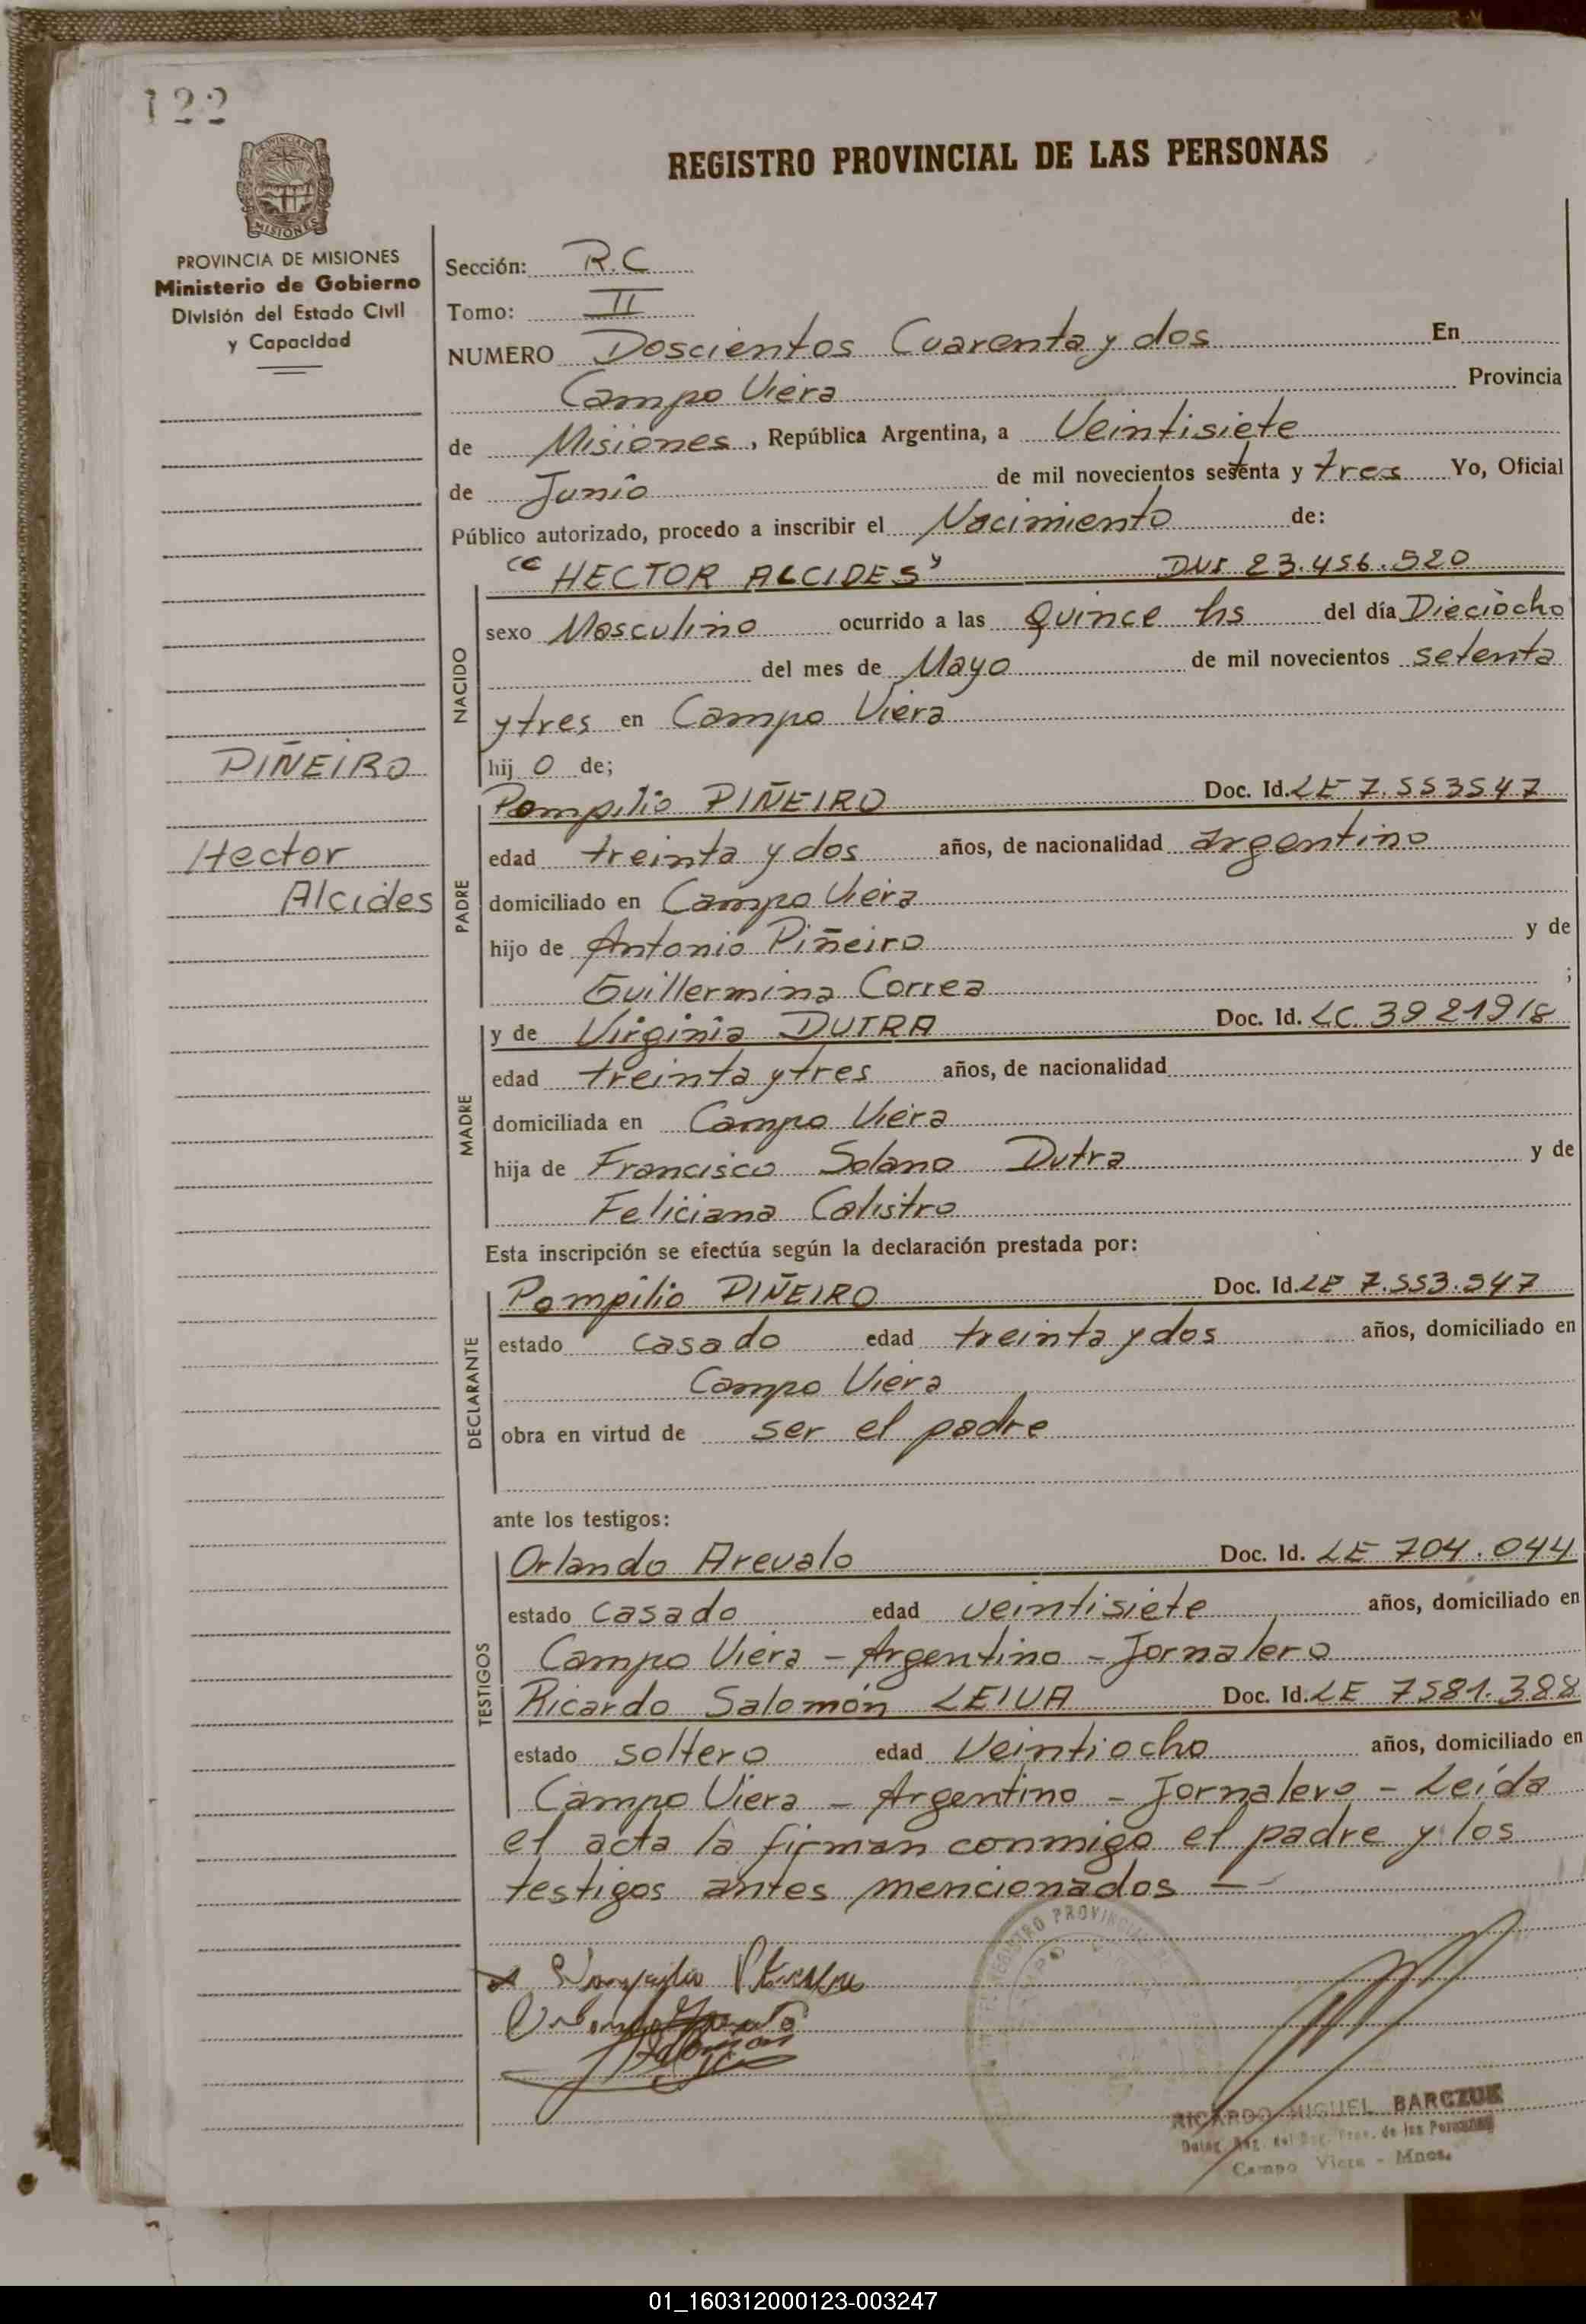 122
REGISTRO PROVINCIAL DE LAS PERSONAS
PROVINCIA DE MISIONES
Ministerio de Gobierno
División del Estado Civil
y Capacidad
PIÑEIRO
Hector
Alcides
Sección: R.C
Tomo: II
NUMERO Doscientos Cuarenta y dos En
Campo Viera Provincia
de Misiones, República Argentina, a Veintisiete
de Junio de mil novecientos setenta y tres Yo, Oficial
Público autorizado, procedo a inscribir el Nacimiento de:
NACIDO
"HECTOR ALCIDES" DNI 23.456.520
sexo Masculino ocurrido a las Quince hs del día Dieciocho
del mes de Mayo de mil novecientos setenta
y tres en Campo Viera
hij o de;
PADRE
Pompilio PIÑEIRO Doc. Id. LE 7.553547
edad treinta y dos años, de nacionalidad argentino
domiciliado en Campo Viera
hijo de Antonio Piñeiro y de
Guillermina Correa ;
MADRE
y de Virginia DUTRA Doc. Id. LC. 3921918
edad treinta y tres años, de nacionalidad
domiciliada en Campo Viera
hija de Francisco Solano Dutra y de
Feliciana Calistro
Esta inscripción se efectúa según la declaración prestada por:
DECLARANTE
Pompilio PIÑEIRO Doc. Id. LE 7.553.547
estado casado edad treinta y dos años, domiciliado en
Campo Viera
obra en virtud de ser el padre
ante los testigos:
TESTIGOS
Orlando Arevalo Doc. Id. LE 704.044
estado casado edad veintisiete años, domiciliado en
Campo Viera - Argentino - Jornalero
Ricardo Salomón LEIVA Doc. Id. LE 7581.388
estado soltero edad Veintiocho años, domiciliado en
Campo Viera - Argentino - Jornalero - Leída
el acta la firman conmigo el padre y los
testigos antes mencionados -
REGISTRO PROVINCIAL
RICARDO MIGUEL BARCZUK
de las Personas
Campo Viera - Mnes.
01_160312000123-003247